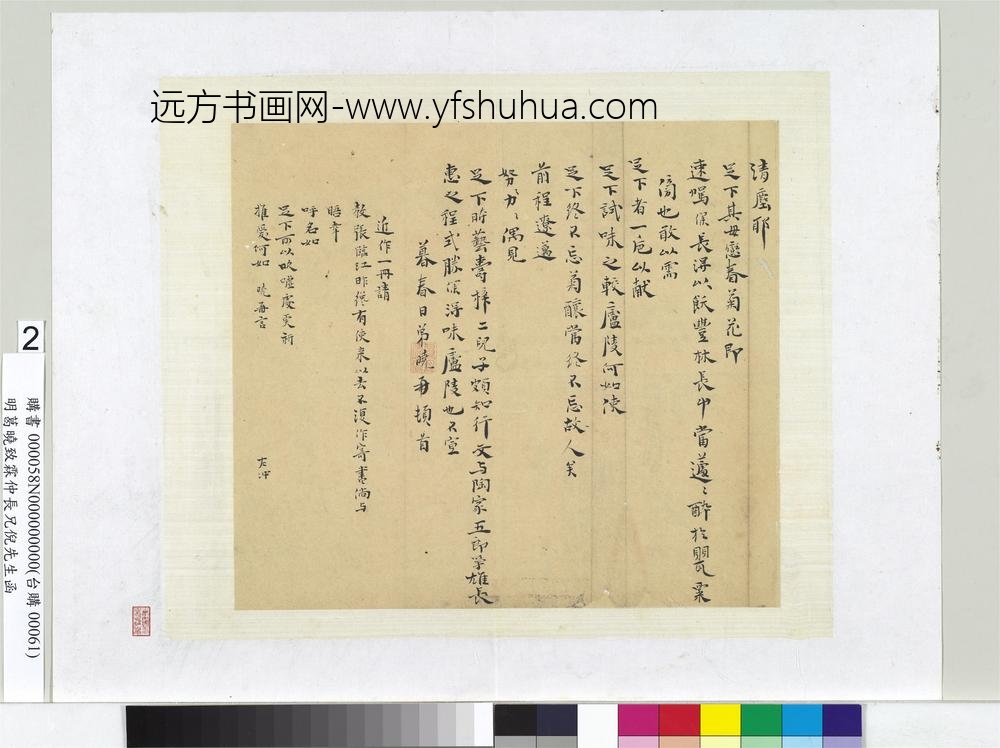 远方书画网-www.yfshuhua.com
清塵耶
足下其毋戀春菊花即
速駕保長得以飫豐林長巾當蘧蘧醉於甖粟
間也敢以需
足下者一卮以献
足下試味之較廬陵何如使
足下終不忘菊釀當終不忘故人矣
前程遼邁
努力力偶見
足下時藝壽梓二兒子頗知行文与陶家五郎學雄長
惠之程式勝保得味廬陵也不宣
暮春日弟曉再頓首
近作一冊請
教張臨江昨纔有使来以去不復作寄書倘与
晤幸
呼名如
足下可以吹噓處更祈
推愛何如 曉再言
右冲
2
購書 000058N000000000(台購 00061)
明葛曉致霖仲長兄倪先生函